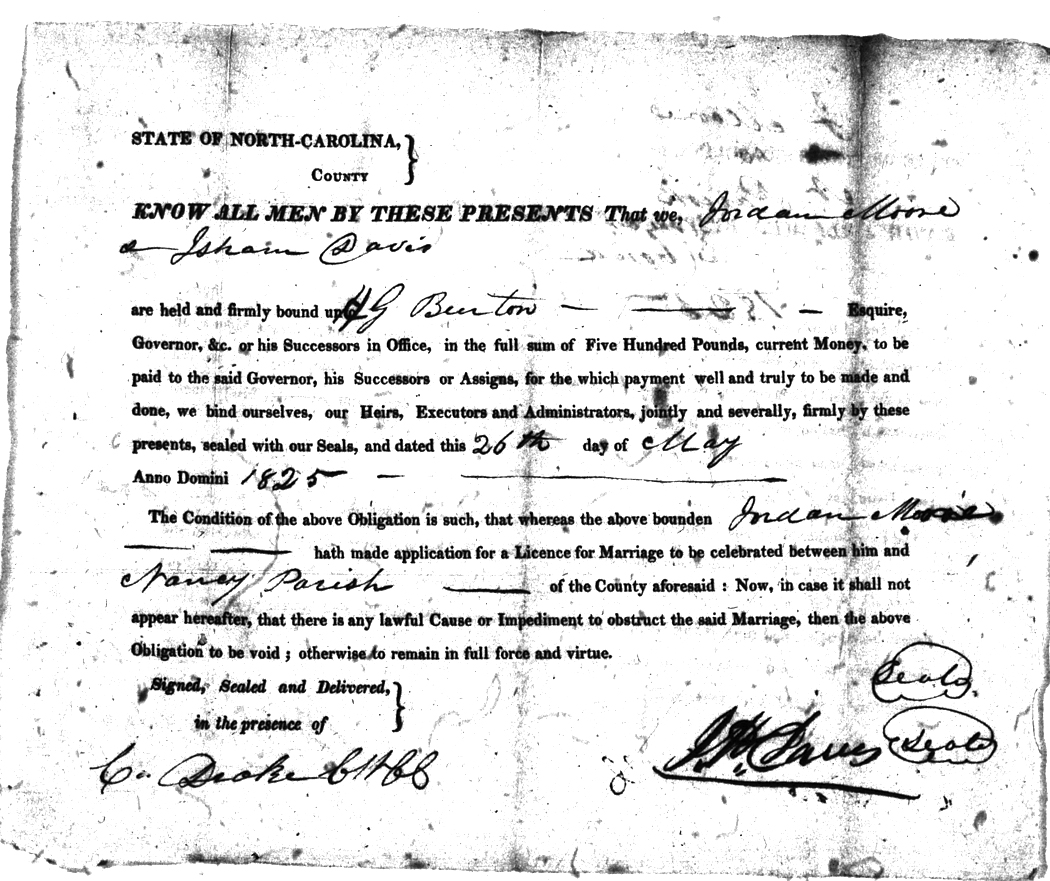 STATE OF NORTH-CAROLINA,
COUNTY
KNOW ALL MEN BY THESE PRESENTS That we, Jordan Moore
& Isham Davis
are held and firmly bound upto H G Burton Esquire,
Governor, &c. or his Successors in Office, in the full sum of Five Hundred Pounds, current Money, to be
paid to the said Governor, his Successors or Assigns, for the which payment well and truly to be made and
done, we bind ourselves, our Heirs, Executors and Administrators, jointly and severally, firmly by these
presents, sealed with our Seals, and dated this 26th day of May
Anno Domini 1825
The Condition of the above Obligation is such, that whereas the above bounden Jordan Moore
hath made application for a Licence for Marriage to be celebrated between him and
Nancy Parish of the County aforesaid : Now, in case it shall not
appear hereafter, that there is any lawful Cause or Impediment to obstruct the said Marriage, then the above
Obligation to be void ; otherwise to remain in full force and virtue.
Signed, Sealed and Delivered,
in the presence of
Seal
Drake
Davis Seal